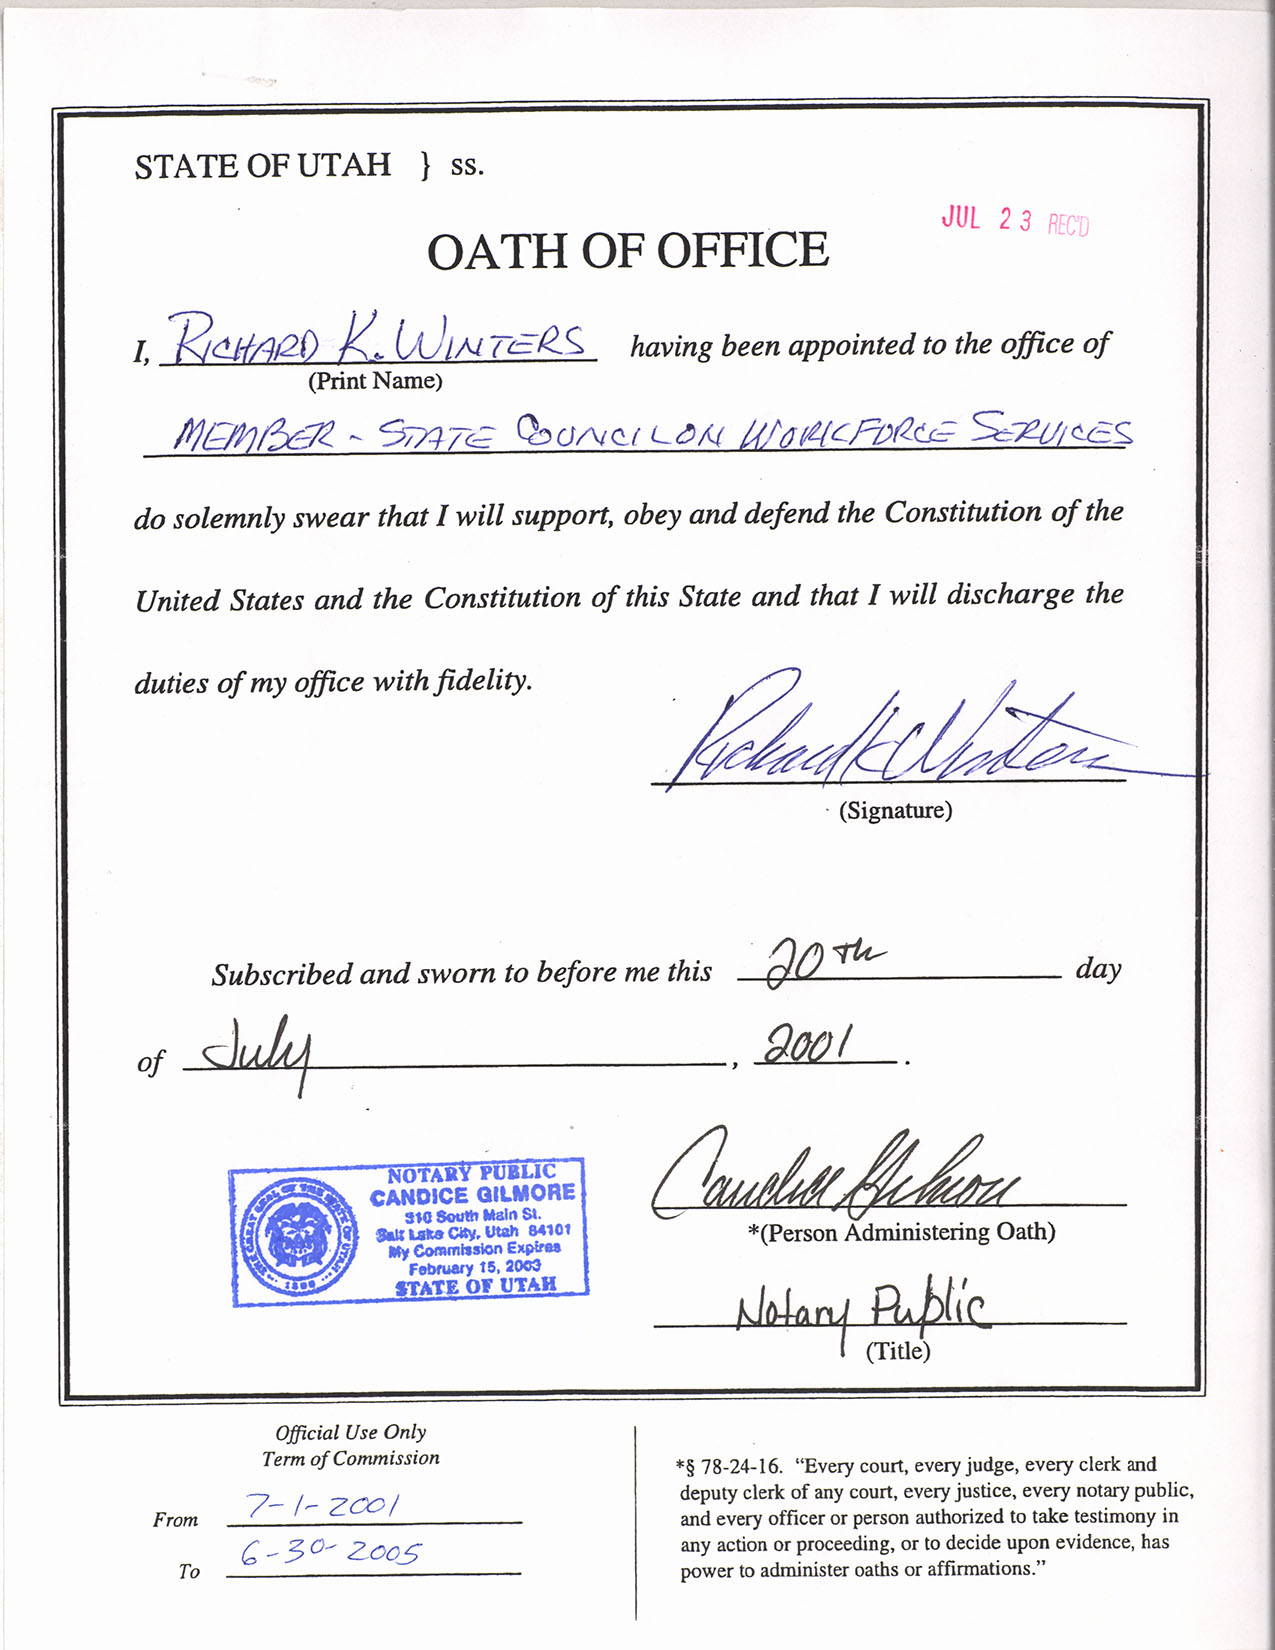 STATE OF UTAH } ss.
JUL 23 REC'D
OATH OF OFFICE
I, RICHARD K. WINTERS having been appointed to the office of
(Print Name)
MEMBER - STATE COUNCIL ON WORKFORCE SERVICES
do solemnly swear that I will support, obey and defend the Constitution of the
United States and the Constitution of this State and that I will discharge the
duties of my office with fidelity.
Richard K Winters
(Signature)
Subscribed and sworn to before me this 20th day
of July, 2001.
NOTARY PUBLIC
CANDICE GILMORE
310 South Main St.
Salt Lake City, Utah 84101
My Commission Expires
February 15, 2003
STATE OF UTAH
THE GREAT SEAL OF THE STATE OF UTAH
1896
Candice Gilmore
*(Person Administering Oath)
Notary Public
(Title)
Official Use Only
Term of Commission
From 7-1-2001
To 6-30-2005
*§ 78-24-16. “Every court, every judge, every clerk and
deputy clerk of any court, every justice, every notary public,
and every officer or person authorized to take testimony in
any action or proceeding, or to decide upon evidence, has
power to administer oaths or affirmations.”